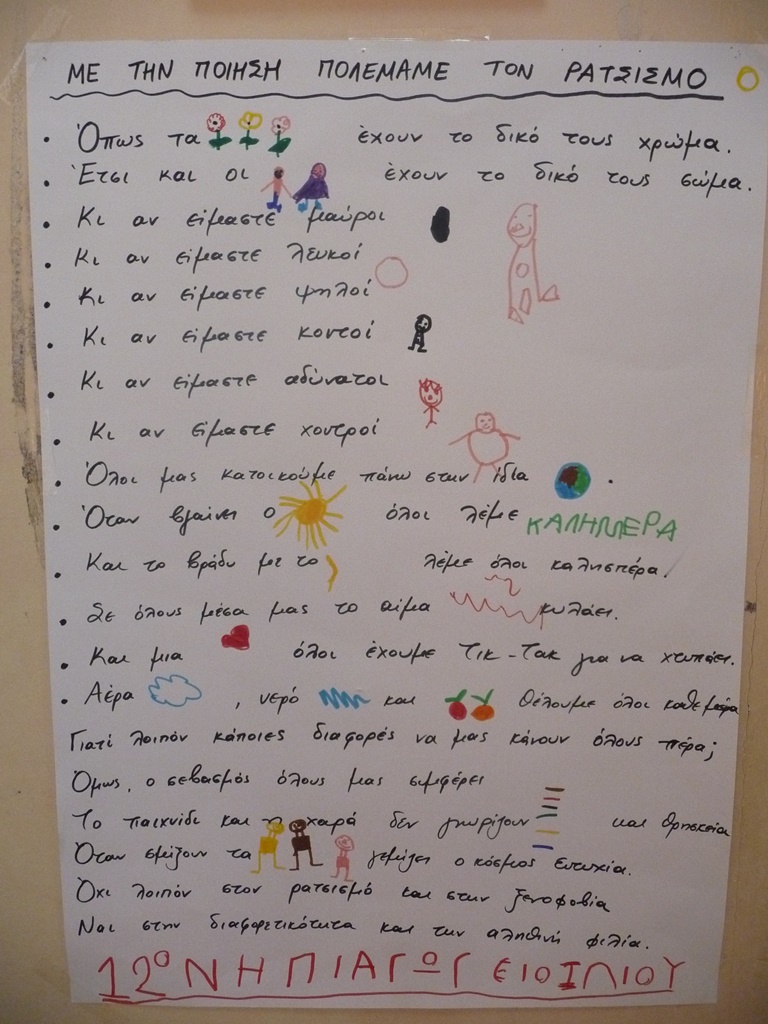 ΜΕ ΤΗΝ ΠΟΙΗΣΗ ΠΟΛΕΜΑΜΕ ΤΟΝ ΡΑΤΣΙΣΜΟ
• Όπως τα έχουν το δικό τους χρώμα.
• Έτσι και οι έχουν το δικό τους σώμα.
• Κι αν είμαστε μαύροι
• Κι αν είμαστε λευκοί
• Κι αν είμαστε ψηλοί
• Κι αν είμαστε κοντοί
• Κι αν είμαστε αδύνατοι
• Κι αν είμαστε χοντροί
• Όλοι μας κατοικούμε πάνω στην ίδια .
• Όταν βγαίνει ο όλοι λέμε ΚΑΛΗΜΕΡΑ
• Και το βράδυ με το λέμε όλοι καλησπέρα.
• Σε όλους μέσα μας το αίμα κυλάει.
• Και μια όλοι έχουμε Τικ-Τακ για να χτυπάει.
• Αέρα , νερό και θέλουμε όλοι κάθε μέρα
Γιατί λοιπόν κάποιες διαφορές να μας κάνουν όλους πέρα;
Όμως, ο σεβασμός όλους μας συμφέρει
Το παιχνίδι και η χαρά δεν γνωρίζουν και θρησκεία
Όταν σμίξουν τα γεμίζει ο κόσμος ευτυχία.
Όχι λοιπόν στον ρατσισμό και στην ξενοφοβία
Ναι στην διαφορετικότητα και την αληθινή φιλία.
12ο ΝΗΠΙΑΓΩΓΕΙΟ ΙΛΙΟΥ